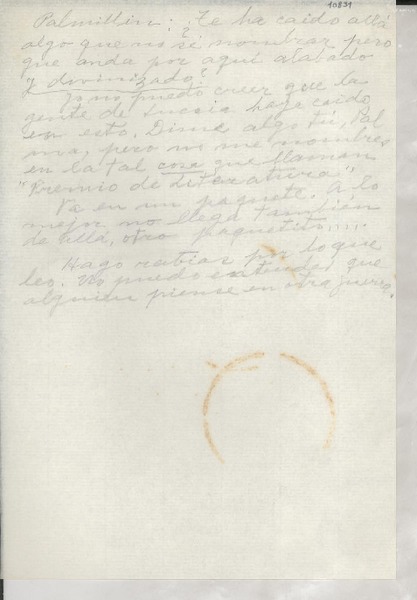 10831
Palmillin: ¿Te ha caído allá
algo que no sé nombrar pero
que anda por aquí alabado
y divinizado?
Yo no puedo creer que la
gente de Suecia haya caído
en esto. Dime algo tú, Pal
ma, pero no me nombres
en la tal cosa que llaman
"Premio de Literatura."
Va en un paquete. A lo
mejor me llega también
de allá, otro paquetito.....
Hago rabiar por lo que
leo. No puedo entender que
alguien piense en